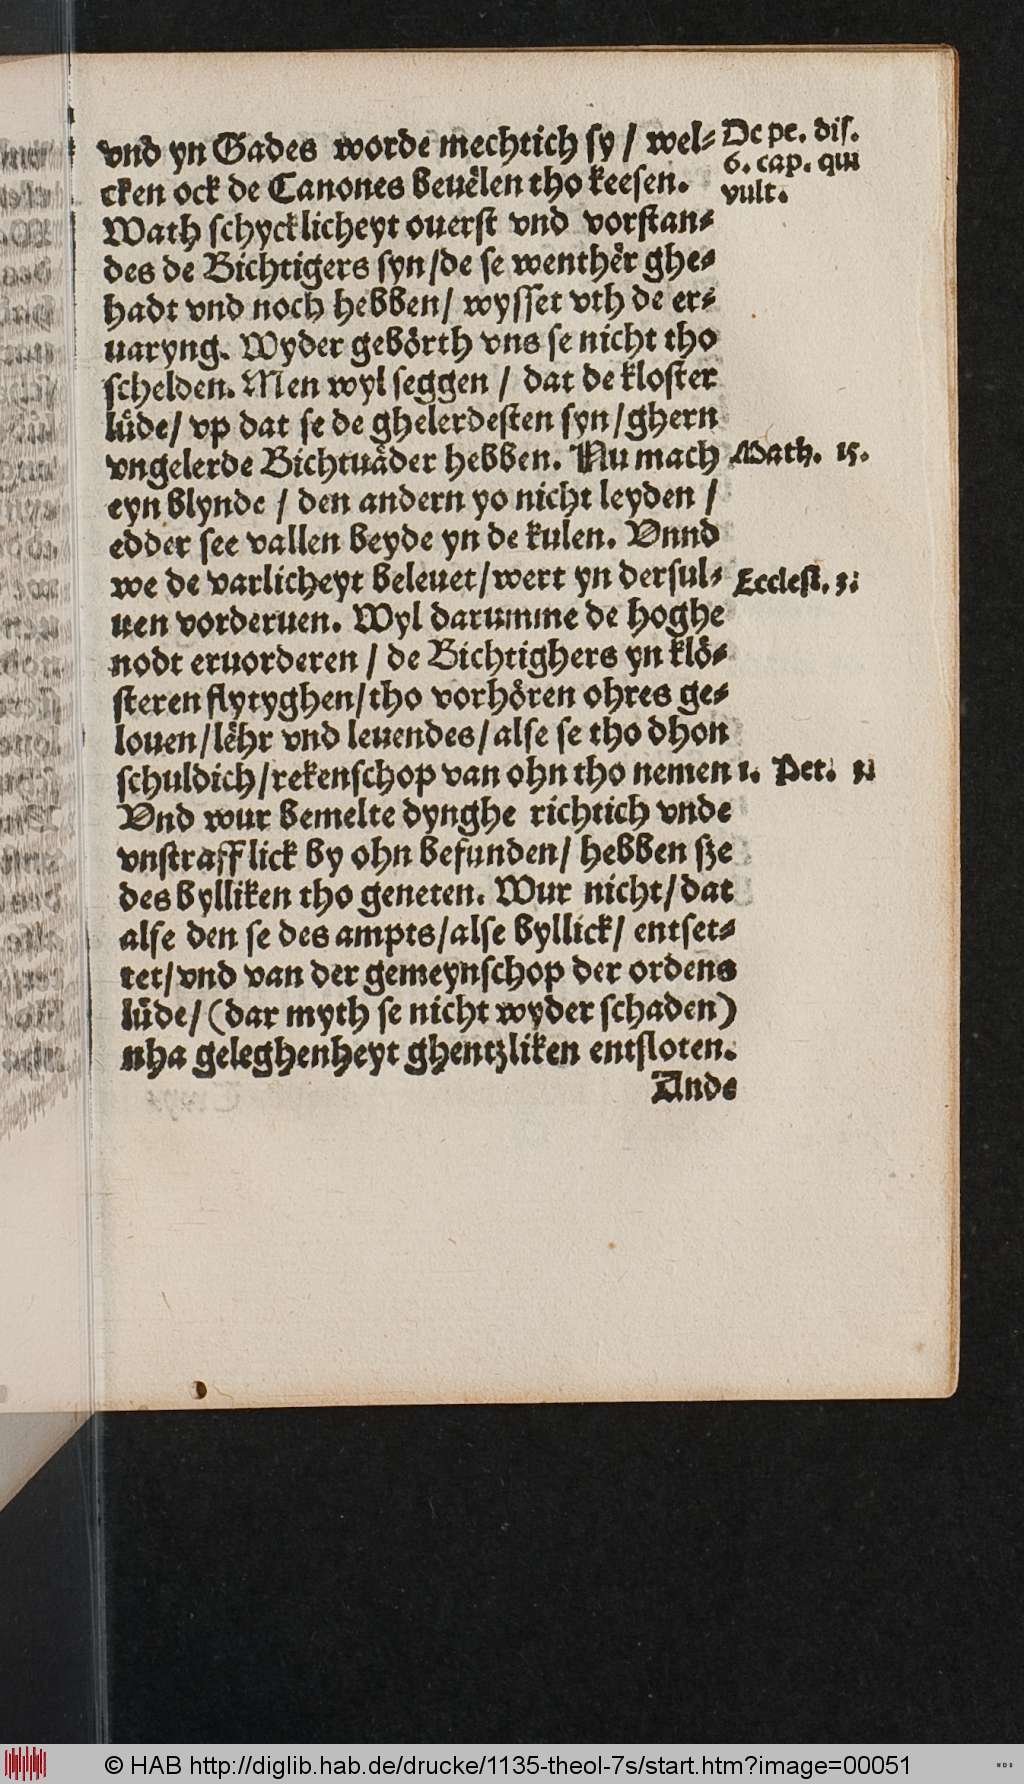 vnd yn Gades worde mechtich sy / wel⸗
cken ock de Canones beuělen tho keesen.
De pe. dis.
6. cap. qui
vult.
Wath schycklicheyt ouerst vnd vorstan⸗
des de Bichtigers syn/de se wenthěr ghe⸗
hadt vnd noch hebben/ wysset vth de er⸗
uaryng. Wyder gebörth vns se nicht tho
schelden. Men wyl seggen / dat de kloster
lůde/ vp dat se de ghelerdesten syn/ghern
vngelerde Bichtuäder hebben. Nu mach
Math. 15.
eyn blynde / den andern yo nicht leyden /
edder see vallen beyde yn de kulen. Vnnd
we de varlicheyt beleuet/wert yn dersul⸗
Ecclesi. 3.
uen vorderuen. Wyl darumme de hoghe
nodt eruorderen / de Bichtighers yn klö⸗
steren flytyghen/tho vorhören ohres ge⸗
louen/lěhr vnd leuendes/alse se tho dhon
schuldich/rekenschop van ohn tho nemen
1. Pet.
Vnd wur bemelte dynghe richtich vnde
vnstrafflick by ohn befunden/ hebben sze
des bylliken tho geneten. Wur nicht/dat
alse den se des ampts/alse byllick/ entset⸗
tet/vnd van der gemeynschop der ordens
lůde/(dar myth se nicht wyder schaden)
nha geleghenheyt ghentzliken entsloten.
Ande
© HAB http://diglib.hab.de/drucke/1135-theol-7s/start.htm?image=00051